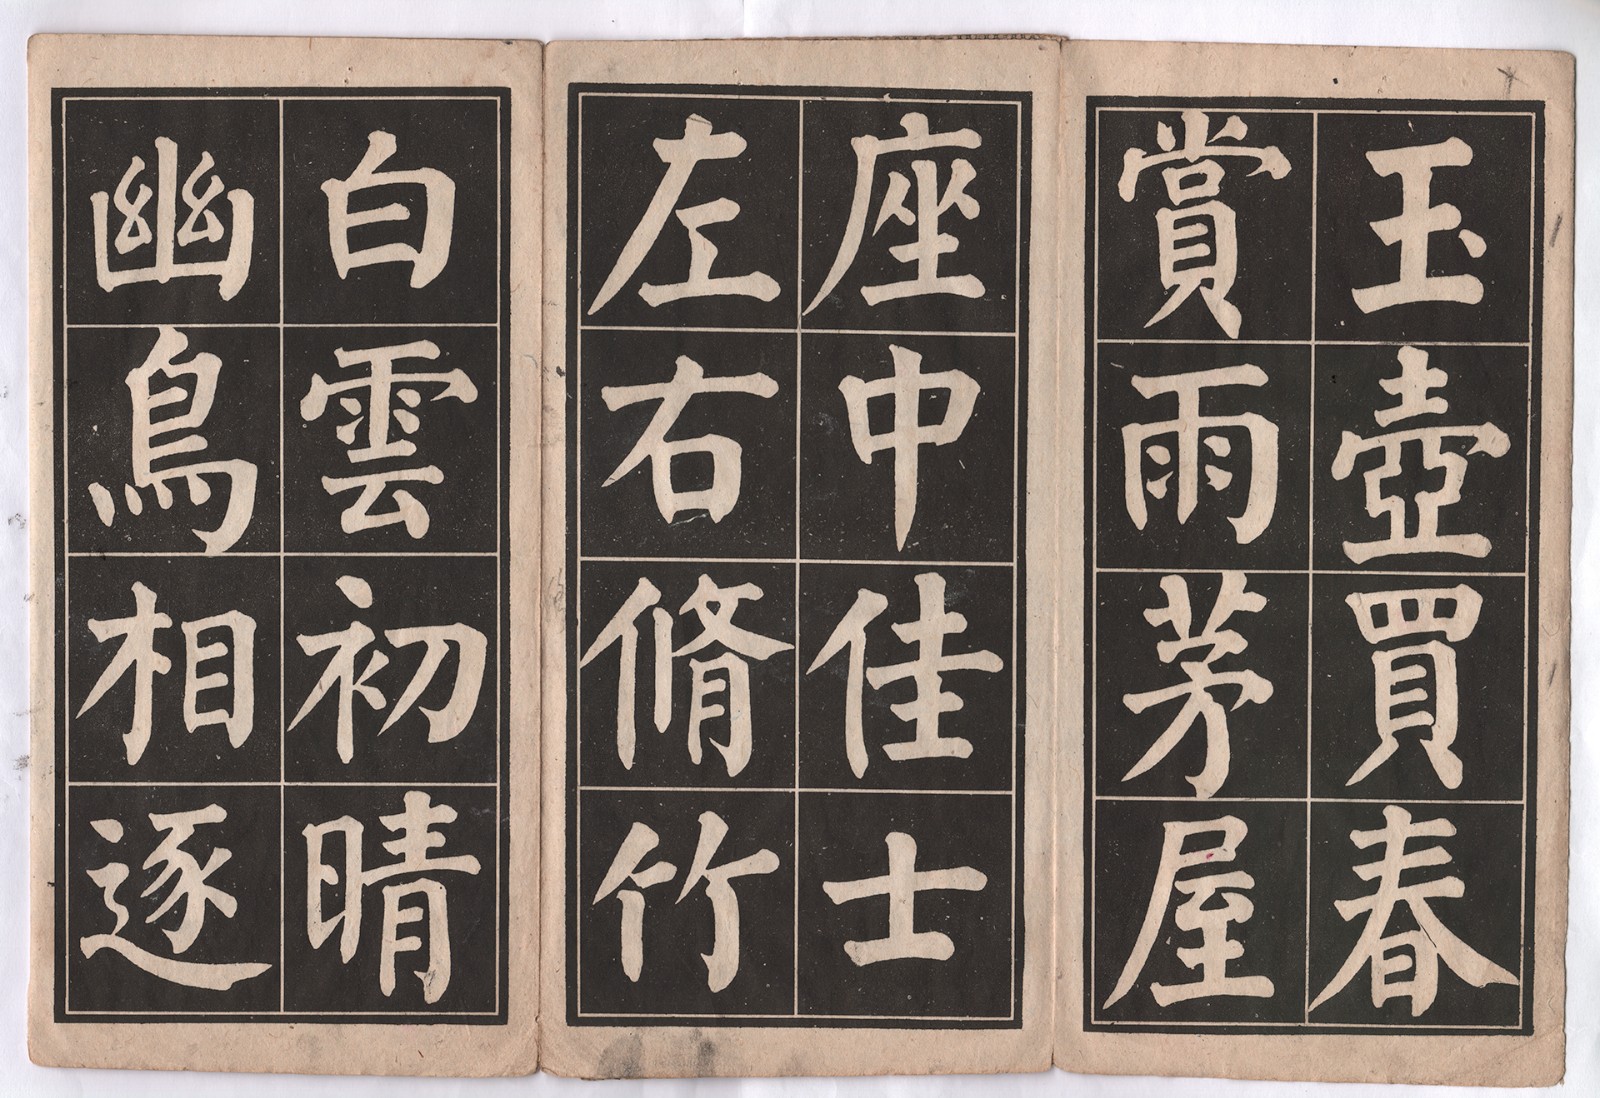 玉壺買春
賞雨茅屋
座中佳士
左右脩竹
白雲初晴
幽鳥相逐